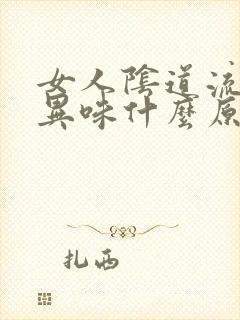 女人陰道流
異味什麼原
扎西